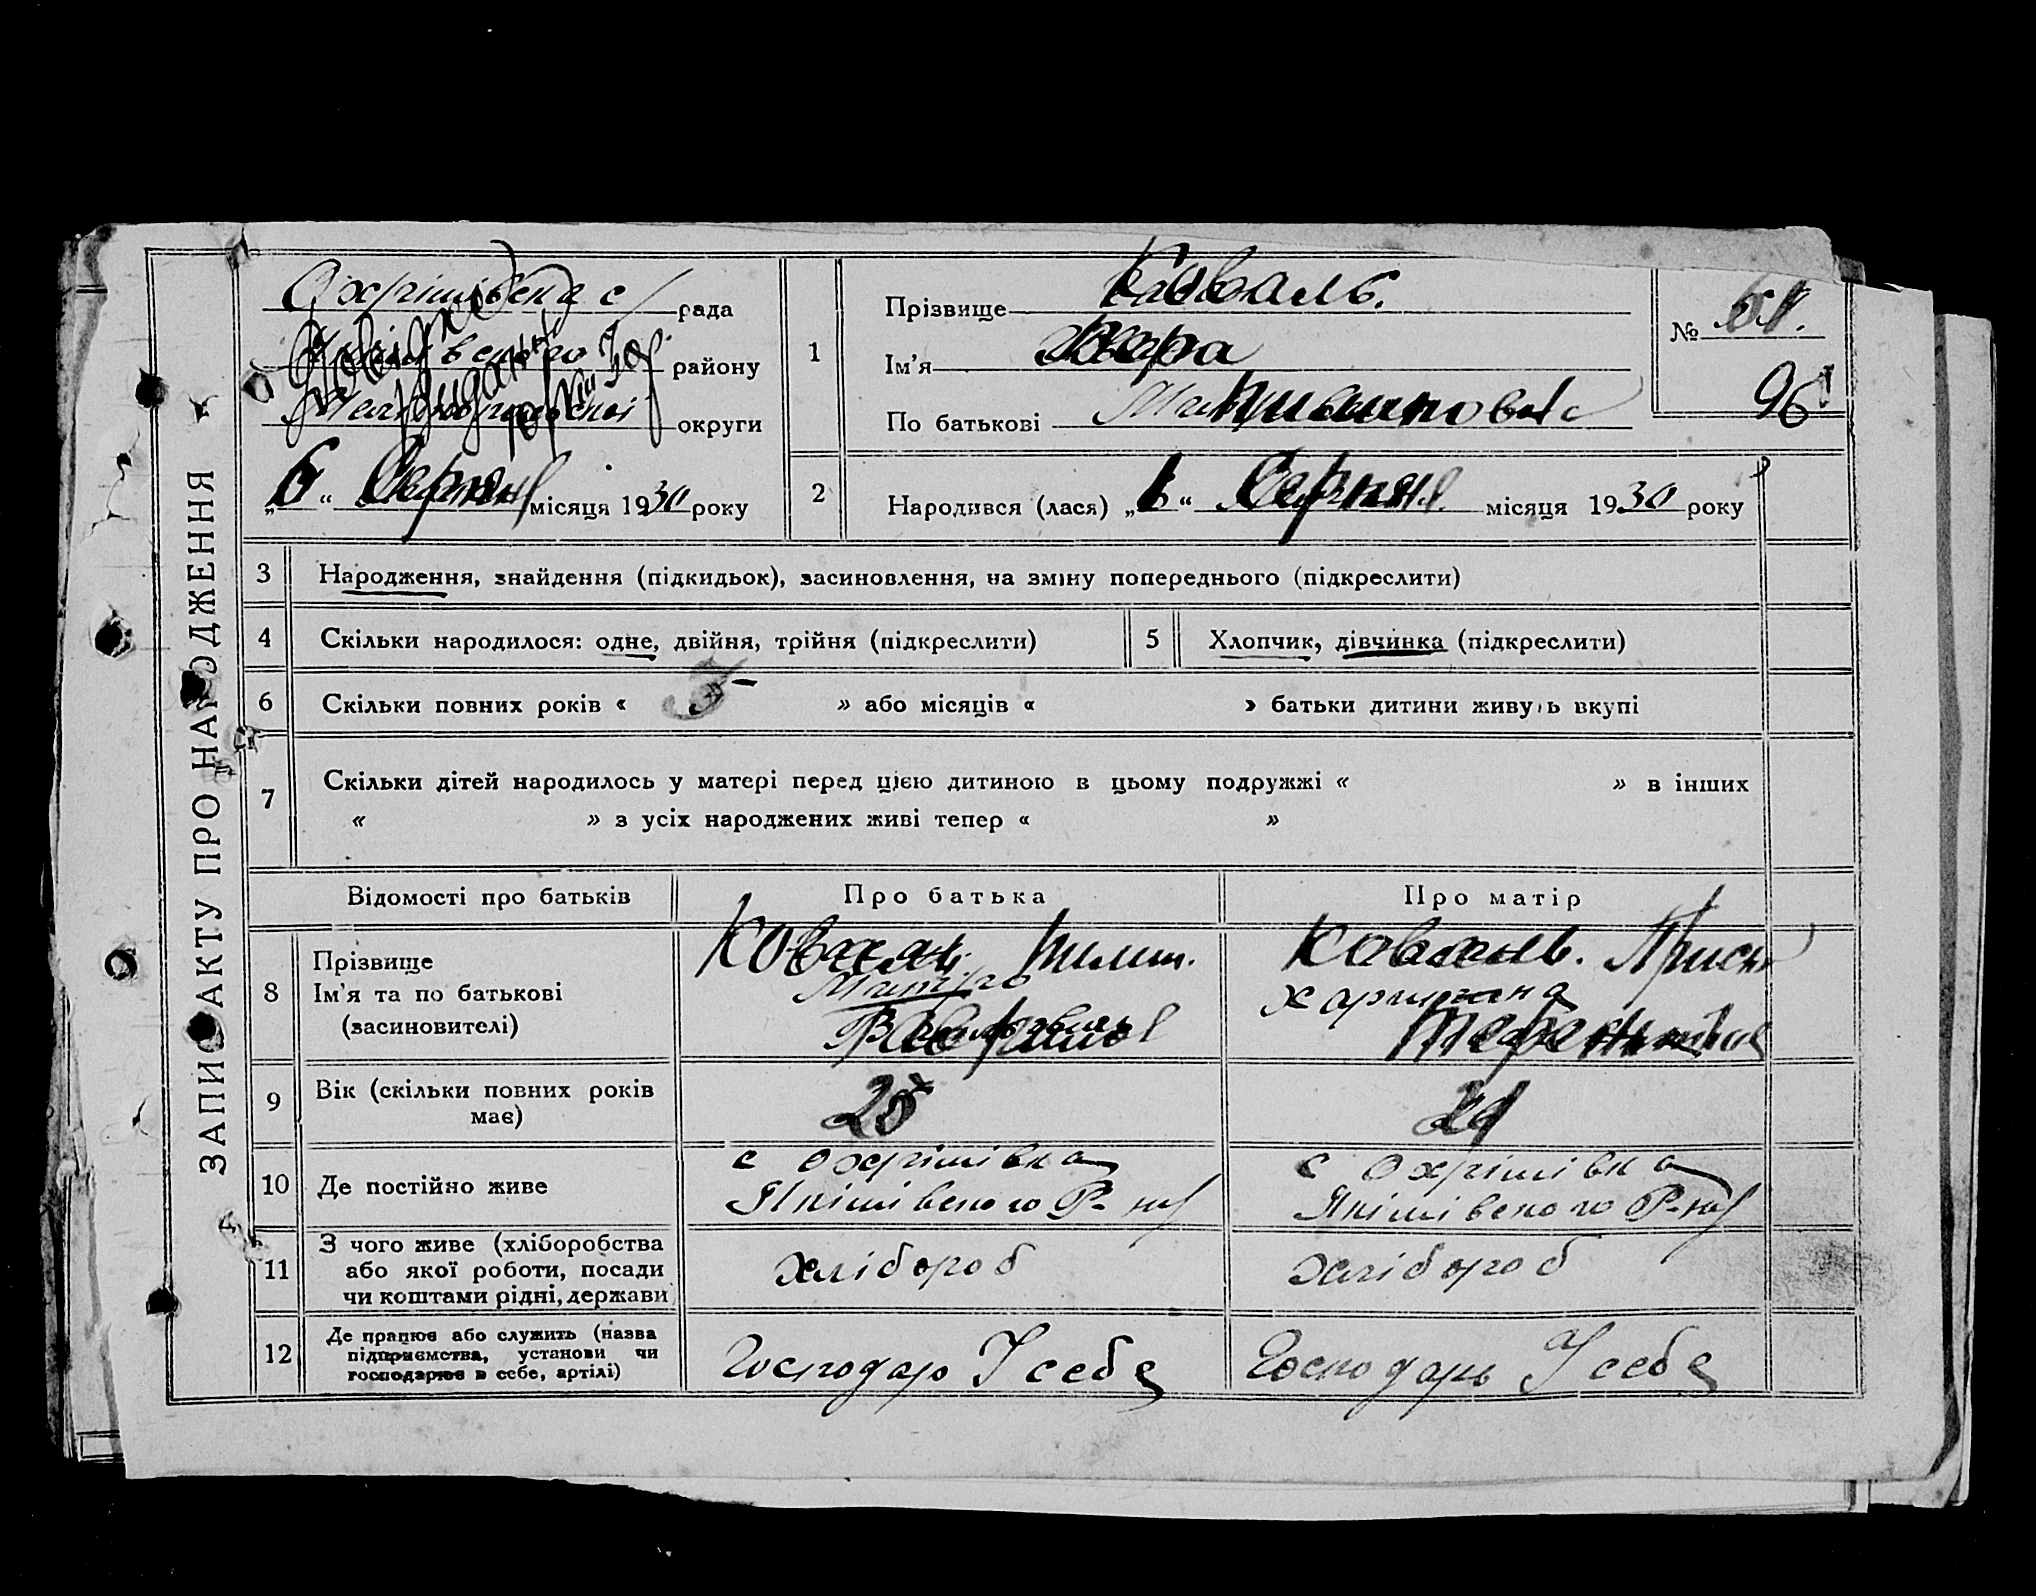 ЗАПИС АКТУ ПРО НАРОДЖЕННЯ
Охрімівська с/рада
району
Мелітопольської округи
"6" Серпня місяця 1930 року
1
Прізвище Коваль.
Ім'я Віра
По батькові
№
96
2
Народився (лася) " " Серпня місяця 1930 року
3 Народження, знайдення (підкидьок), засиновлення, на зміну попереднього (підкреслити)
4 Скільки народилося: одне, двійня, трійня (підкреслити)
5 Хлопчик, дівчинка (підкреслити)
6 Скільки повних років « » або місяців « » батьки дитини живуть вкупі
7 Скільки дітей народилось у матері перед цією дитиною в цьому подружжі « » в інших
« » з усіх народжених живі тепер « »
Відомості про батьків
Про батька
Про матір
8 Прізвище
Ім'я та по батькові
(засиновителі)
Коваль.
Коваль.
9 Вік (скільки повних років
має)
25
21
10 Де постійно живе
с Охрімівка
Якімівского Р-ну
с Охрімівка
Якімівского Р-ну
11 З чого живе (хліборобства
або якої роботи, посади
чи коштами рідні, держави
хлібороб
хлібороб
12 Де працює або служить (назва
підприємства, установи чи
господарює в себе, артілі)
Господарю У себе
Господарь У себе